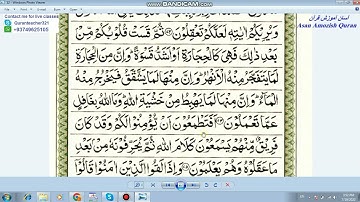 32 - Windows Photo Viewer
WWW.BANDICAM.COM
Contact me for live classes
Quranteacher321
+93749625105
آسان آموزش قرآن
Asan Amozish Quran
وَيُرِيكُمْ اٰيٰتِهٖ لَعَلَّكُمْ تَعْقِلُوْنَ ثُمَّ قَسَتْ قُلُوْبُكُمْ مِّنْۢ
بَعْدِ ذٰلِكَ فَهِيَ كَالْحِجَارَةِ اَوْ اَشَدُّ قَسْوَةً ۭ وَاِنَّ مِنَ الْحِجَارَةِ
لَمَا يَتَفَجَّرُ مِنْهُ الْاَنْهٰرُ ۭ وَاِنَّ مِنْهَا لَمَا يَشَّقَّقُ فَيَخْرُجُ مِنْهُ
الْمَاۗءُ ۭ وَاِنَّ مِنْهَا لَمَا يَهْبِطُ مِنْ خَشْيَةِ اللّٰهِ ۭ وَمَا اللّٰهُ بِغَافِلٍ
عَمَّا تَعْمَلُوْنَ اَفَتَطْمَعُوْنَ اَنْ يُّؤْمِنُوْا لَكُمْ وَقَدْ كَانَ
فَرِيْقٌ مِّنْھُمْ يَسْمَعُوْنَ كَلٰمَ اللّٰهِ ثُمَّ يُحَرِّفُوْنَهٗ مِنْۢ بَعْدِ
مَا عَقَلُوْهُ وَھُمْ يَعْلَمُوْنَ وَاِذَا لَقُوا الَّذِيْنَ اٰمَنُوْا قَالُوْٓا